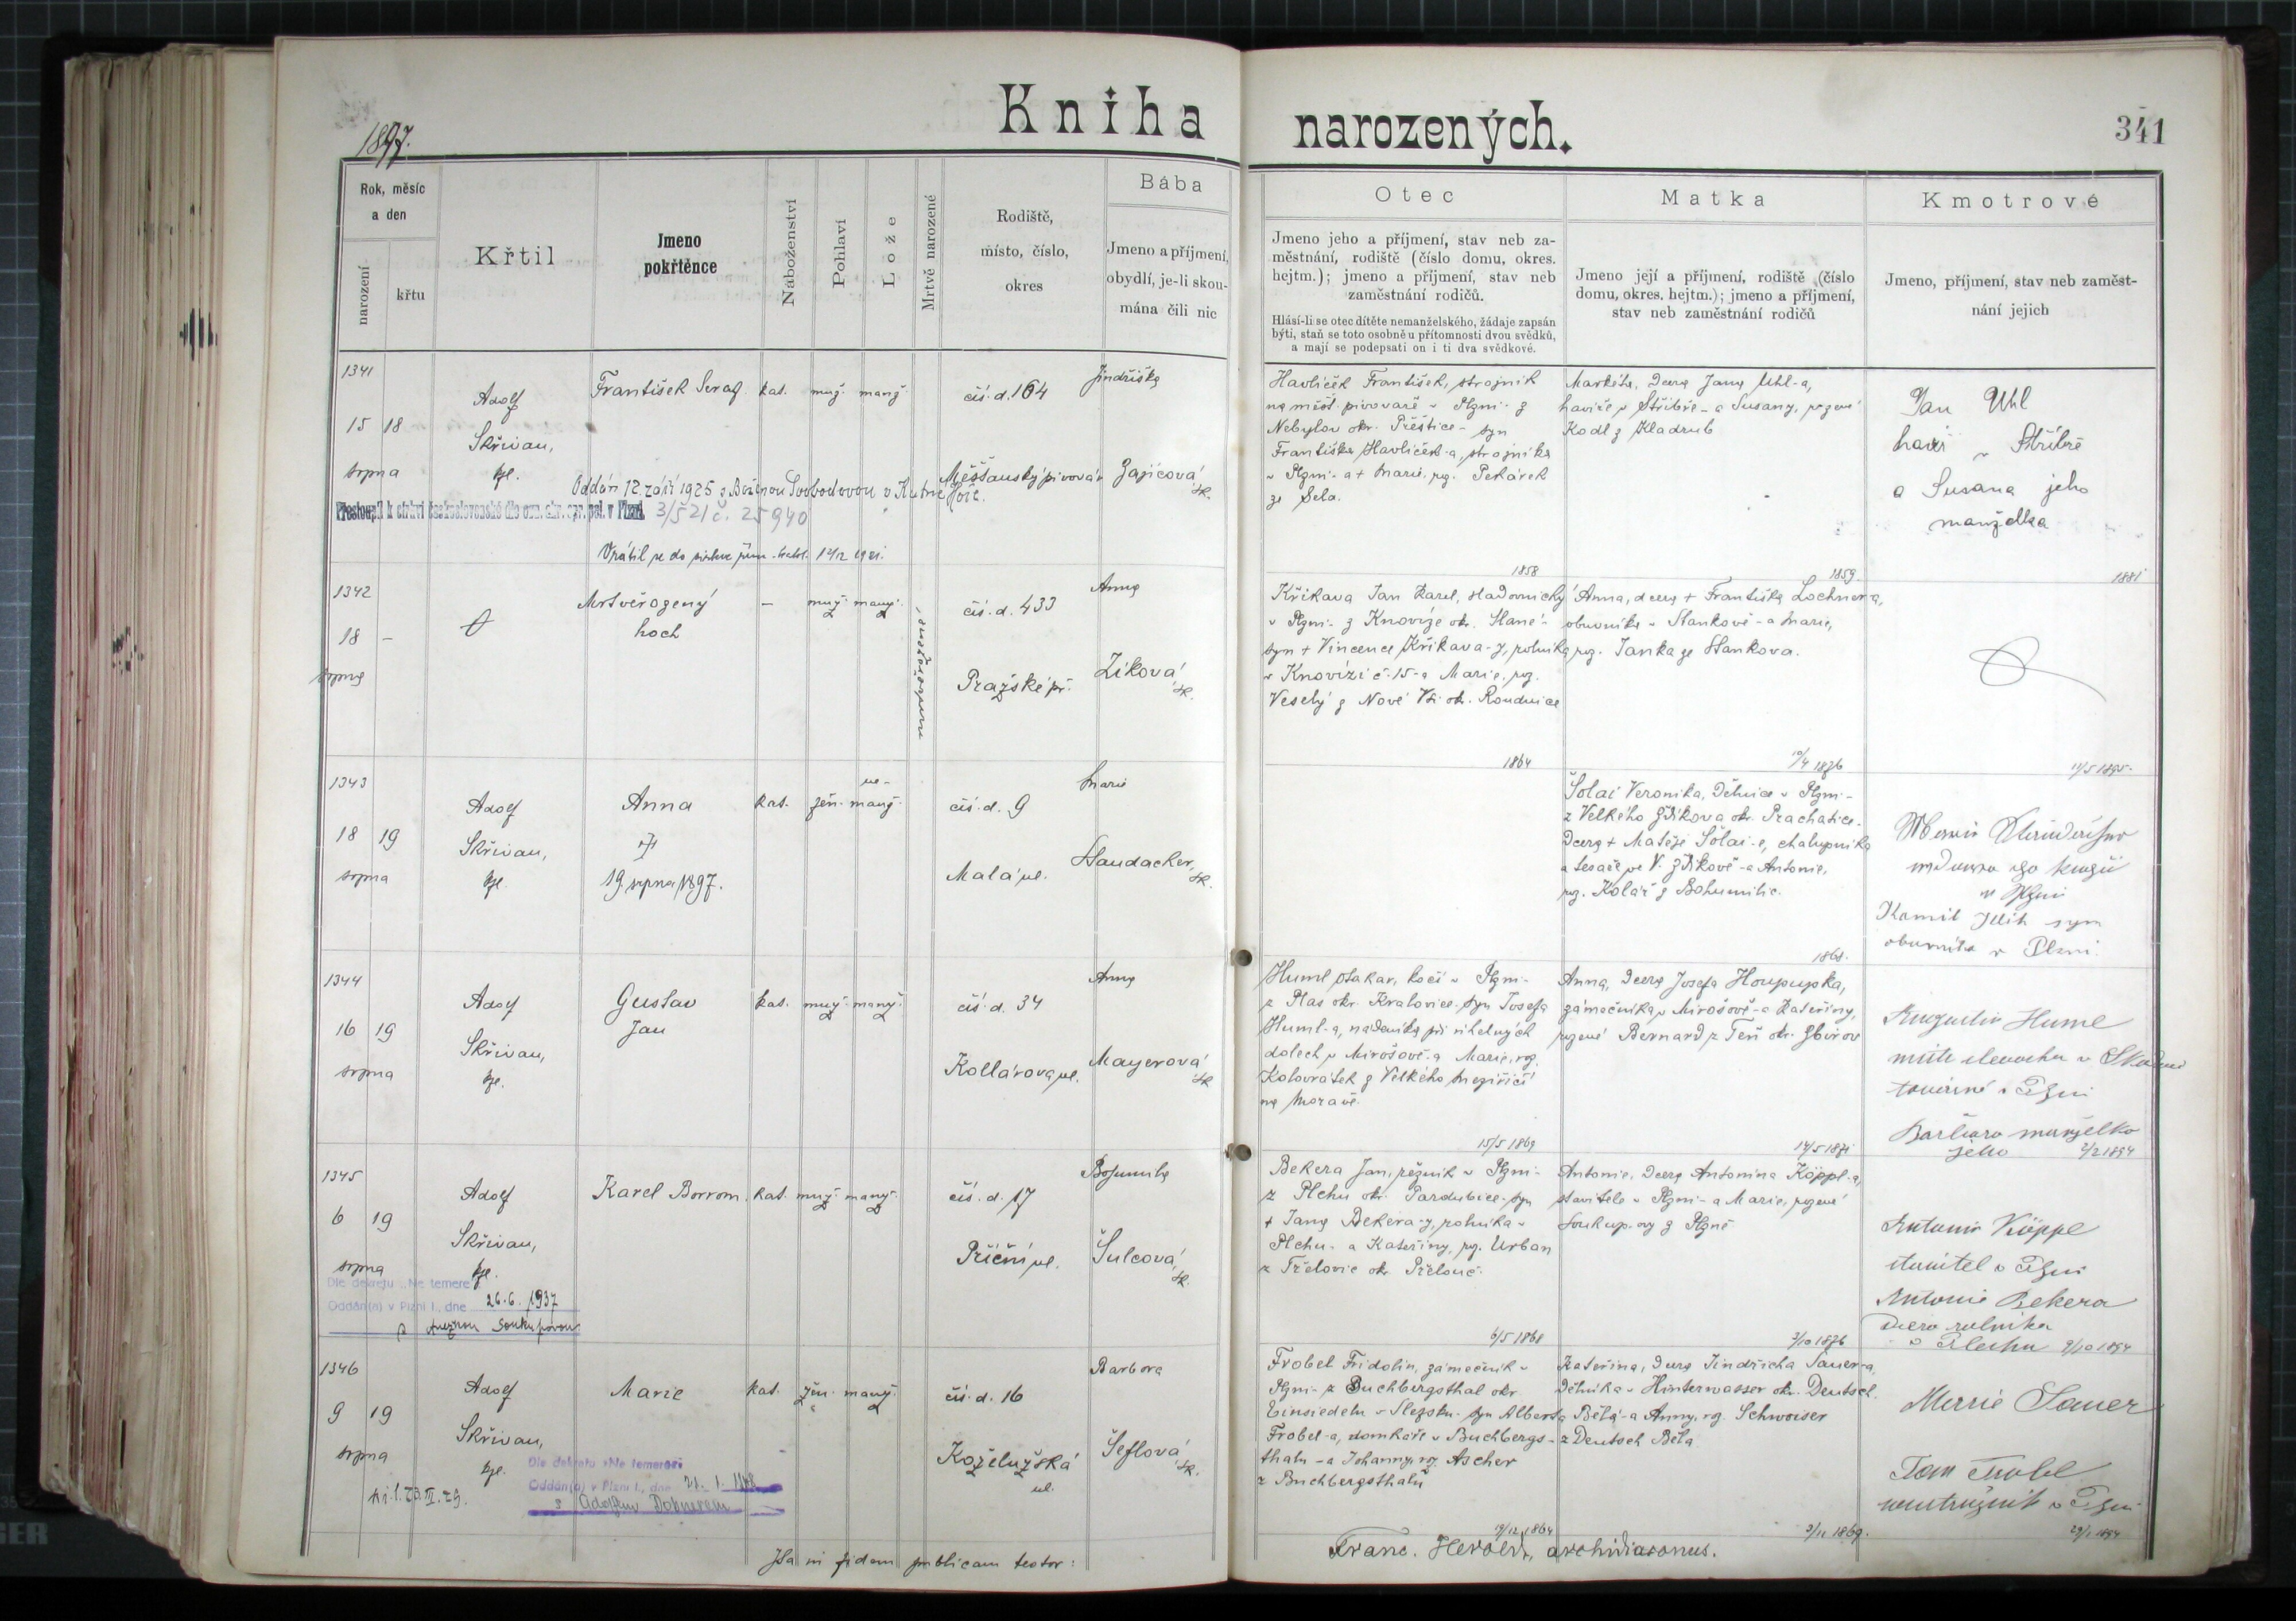 Kniha narozených.
341
1897.
Rok, měsíc
a den
narození
křtu
Křtil
Jmeno
pokřtěnce
Náboženství
Pohlaví
Lože
Mrtvě narozené
Rodiště,
místo, číslo,
okres
Bába
Jmeno a příjmení,
obydlí, je-li skou-
mána čili nic
Otec
Jmeno jeho a příjmení, stav neb za-
městnání, rodiště (číslo domu, okres.
hejtm.); jmeno a příjmení, stav neb
zaměstnání rodičů.
Hlásí-li se otec dítěte nemanželského, žádaje zapsán
býti, staň se toto osobně u přítomnosti dvou svědků,
a mají se podepsati on i ti dva svědkové.
Matka
Jmeno její a příjmení, rodiště (číslo
domu, okres. hejtm.); jmeno a příjmení,
stav neb zaměstnání rodičů
Kmotrové
Jmeno, příjmení, stav neb zaměst-
nání jejich
1341
15 18
srpna
Adolf
Skřivan,
kpl.
František Seraf.
kat.
muž.
manž.
čís. d. 164
Měšťanský pivovár
Jindřiška
Zajícová
sk.
Oddán 12. září 1925 s Boženou Svobodovou v Kutné Hoře.
Přestoupil k církvi československé dle ozn. okr. spr. pol. v Plzni 3/5 21 č. 25940
Vrátil se do církve řím.-katol. 12/12 1921.
Havlíček František, strojník
na měšť. pivovaře v Plzni - z
Nebylov okr. Přeštice - syn
Františka Havlíček-a, strojníka
v Plzni - a + Marie, roz. Pekárek
ze Sela.
1858
Markéta, dcera Jana Uhl-a,
havíře v Stříbře - a Susany, rozené
Kodl z Kladrub
1859.
Jan Uhl
havíř v Stříbře
a Susana jeho
manželka
1881
1342
18 -
srpna
Mrtvěrozený
hoch
-
muž.
manž.
mrtvěrozený.
čís. d. 433
Pražské př.
Anna
Ziková
sk.
Křikava Jan Karel, sladovnický
v Plzni - z Knovíze okr. Slané -
syn + Vincence Křikava-y, rolníka
v Knovízi č. 15 - a Marie, roz.
Veselý z Nové Vsi okr. Roudnice
1864
Anna, dcera + Františka Lochner-a,
obuvníka v Stankově - a Marie,
roz. Janka ze Stankova.
10/4 1876
11/5 1895.
1343
18 19
srpna
Adolf
Skřivan,
kpl.
Anna
19. srpna 1897.
kat.
žen.
ne-
manž.
čís. d. 9
Malá ul.
Marie
Standacher,
sk.
Šolai Veronika, dělnice v Plzni -
z Velkého Zdíkova okr. Prachatice -
dcera + Matěje Šolai-e, chalupníka
a tesaře ve V. Zdíkově - a Antonie,
roz. Kolář z Bohumilic.
1868.
v Plzni
Kamil Illih syn
obuvníka v Plzni.
1344
16 19
srpna
Adolf
Skřivan,
kpl.
Gustav
Jan
kat.
muž.
manž.
čís. d. 34
Kollárova ul.
Anna
Mayerová
sk.
Huml Otakar, kočí v Plzni -
z Plas okr. Kralovice - syn Josefa
Huml-a, nadeníka při uhelných
dolech v Mirošově - a Marie, roz.
Kolovrátek z Velkého Meziříčí
na Moravě.
15/5 1869
Anna, dcera Josefa Houpupka,
zámečníka v Mirošově - a Kateřiny,
rozené Bernard z Teň okr. Zbirov
14/5 1871
Augustin Huml
v Plzni
Barbora manželka
jeho 2/2 1894
1345
6 19
srpna
Adolf
Skřivan,
kpl.
Karel Borrom.
kat.
muž.
manž.
čís. d. 17
Příční ul.
Bohumila
Šulcová,
sk.
Dle dekretu „Ne temere“
Oddán(a) v Plzni I., dne 26. 6. 1937
s Anežkou Soukupovou
Bekera Jan, řezník v Plzni -
z Plchu okr. Pardubice - syn
+ Jana Bekera-y, rolníka v
Plchu - a Kateřiny, roz. Urban
z Trčlovic okr. Přelouč.
6/5 1868
Antonie, dcera Antonína Köppl-a,
stavitele v Plzni - a Marie, rozené
Soukup-ovy z Plzně
7/10 1876
Antonín Köppl
stavitel v Plzni
Antonie Bekera
dcera rolníka
v Plechu 9/10 1894
1346
9 19
srpna
Adolf
Skřivan,
kpl.
Marie
kat.
žen.
manž.
čís. d. 16
Koželužská
ul.
Barbora
Šeflová
sk.
Dle dekretu „Ne temere“
Oddán(a) v Plzni I., dne
s Adolfem Dobnerem
Frobel Fridolin, zámečník v
Plzni - z Buchbergsthal okr.
Einsiedeln v Slezsku - syn Alberta
Frobel-a, domkáře v Buchbergs-
thalu - a Johanny, roz. Ascher
z Buchbergsthalu
19/12 1864
Kateřina, dcera Jindřicha Sauer-a,
dělníka v Hinterwasser okr. Deutsch.
Bělá - a Anny, roz. Schwoiser
z Deutsch Běla
3/11 1869.
Marie Sauer
Jan Frobel
v Plzni
29/1 1894
Ita in fidem publicam testor:
Franc. Herold, archidiaconus.